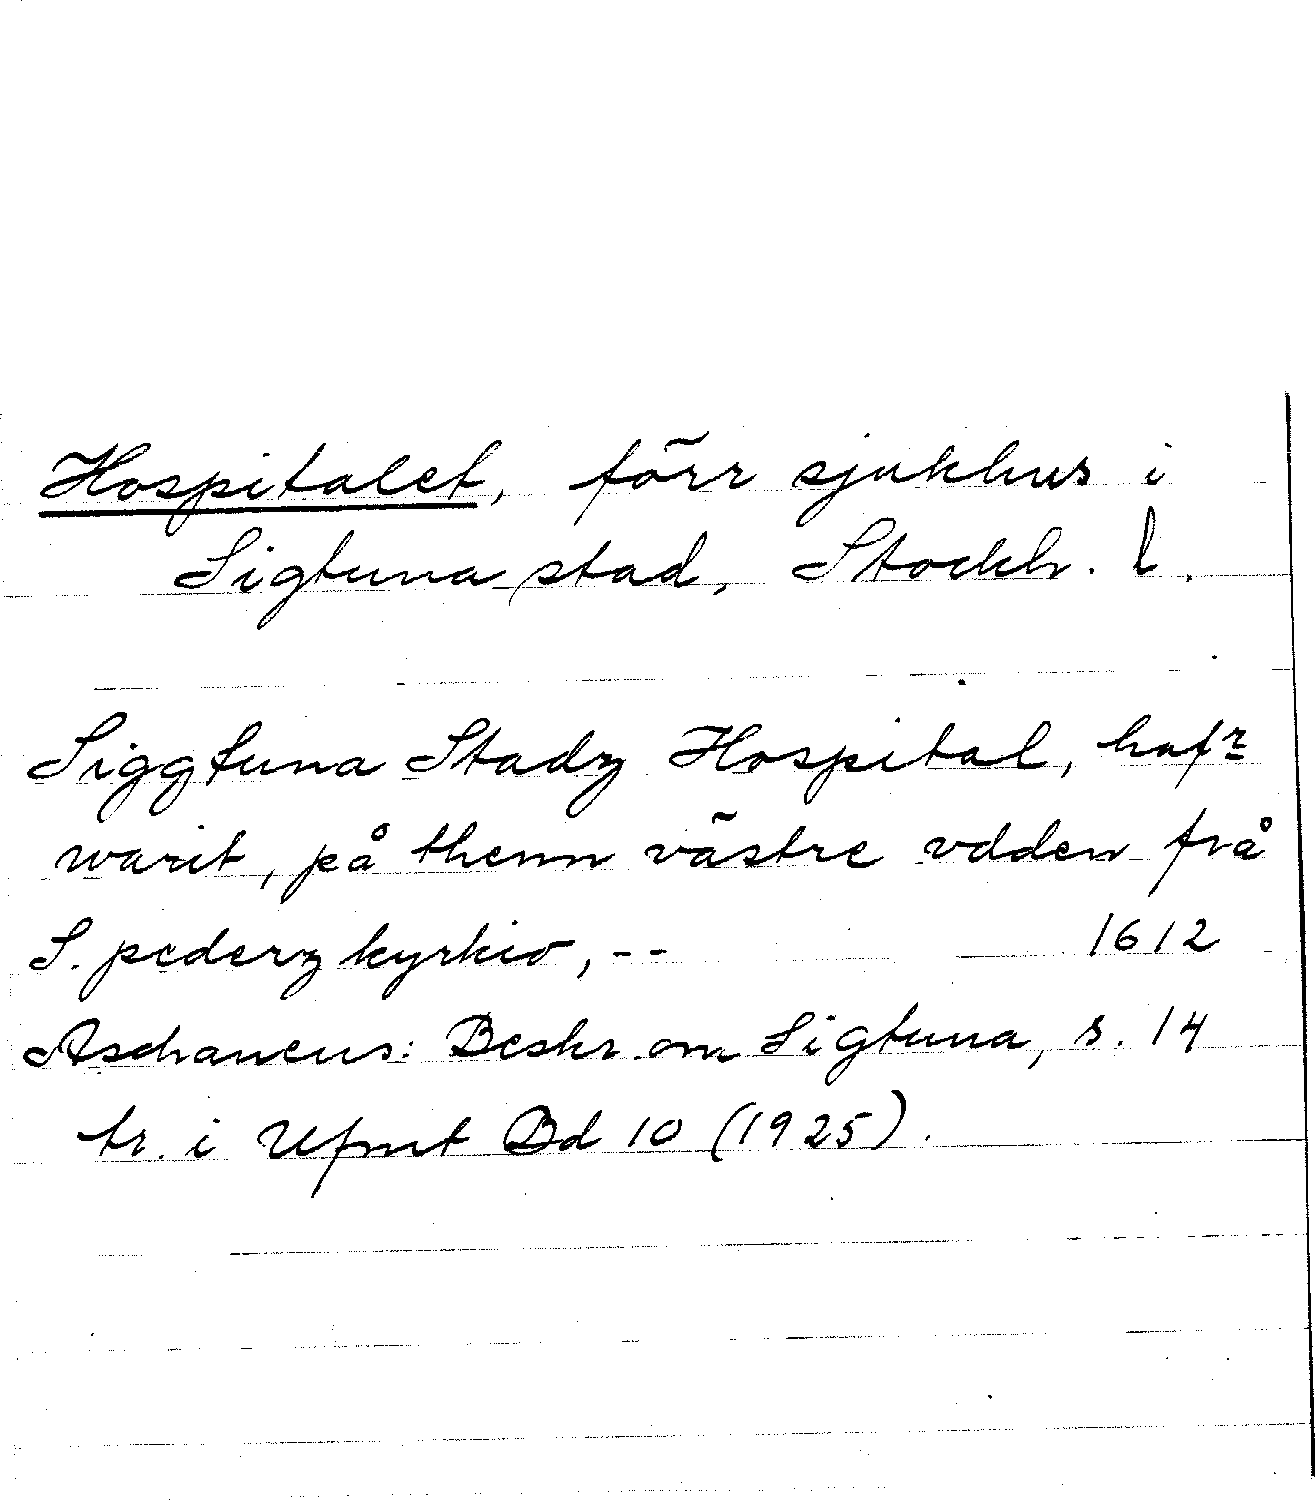 Hospitalet, förr sjukhus i
Sigtuna stad, Stockh. l.
Siggtuna Stadz Hospital, hafr
warit, på thenn västre vdden frå
S. pederz kyrkio, -- 1612
Aschaneus: Beskr. om Sigtuna, s. 14
tr. i Ufmt Bd 10 (1925).